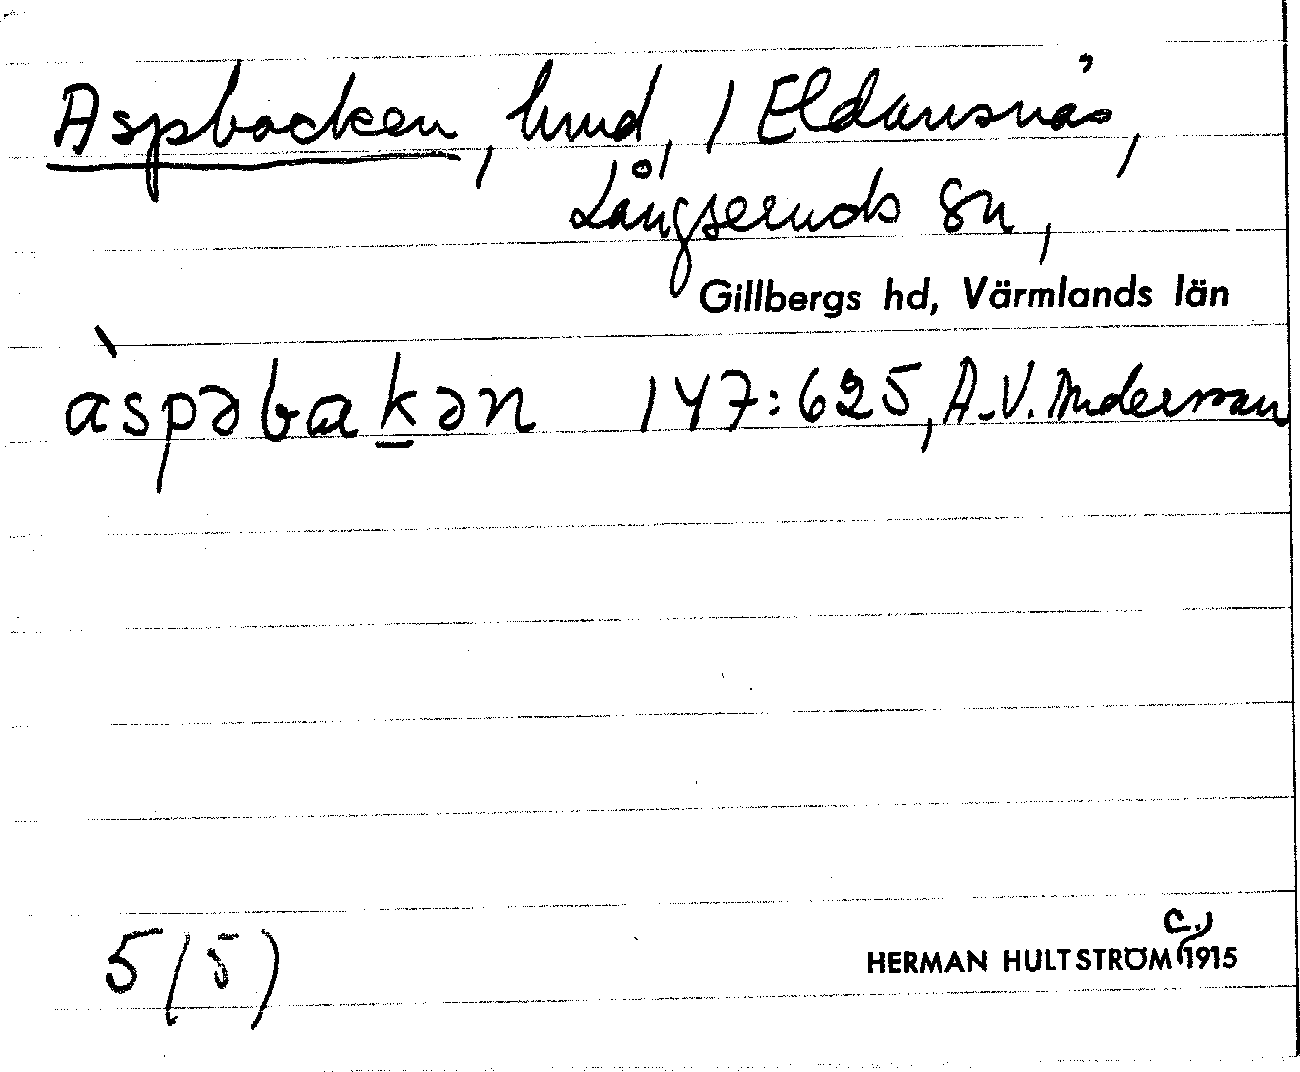 Aspbacken, hmd, / Eldansnäs,
Långseruds sn,
Gillbergs hd, Värmlands län
`aspəbakən 147:625, A.V. Andersson
c.)
5 (5) HERMAN HULTSTRÖM 1915